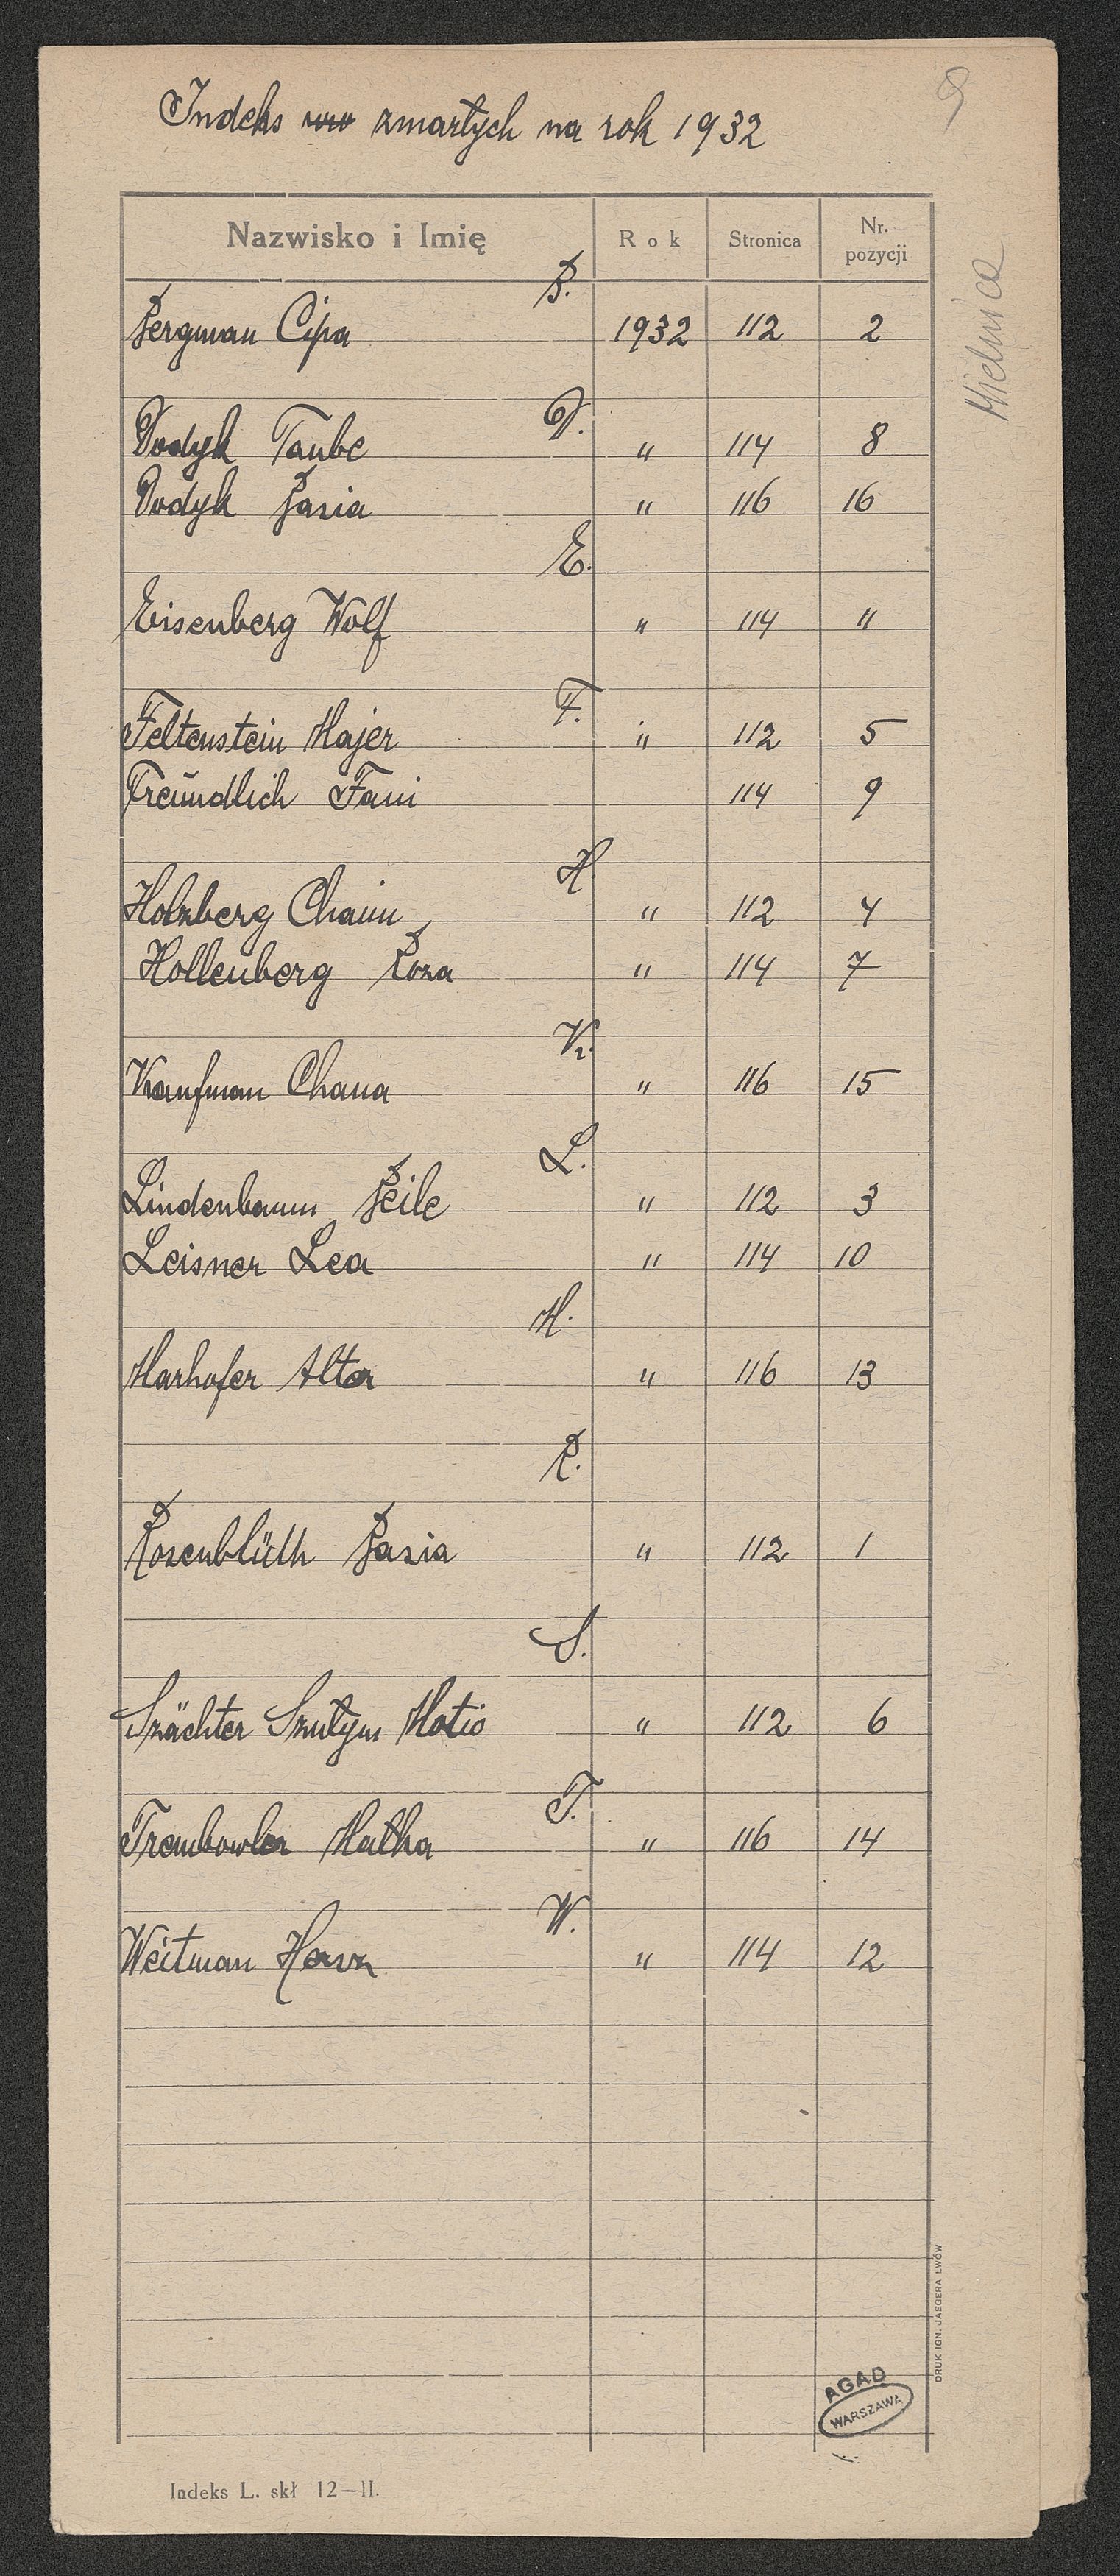 9
Indeks zmarłych na rok 1932
Mielnica
Nazwisko i Imię Rok Stronica Nr. pozycji
B.
Bergman Cipa 1932 112 2
D.
Dodyk Taube " 114 8
Dodyk Basia " 116 16
E.
Eisenberg Wolf " 114 11
F.
Feltenstein Majer " 112 5
Freundlich Fani 114 9
H.
Holzberg Chaim " 112 4
Hollenberg Roza " 114 7
K.
Kaufman Chana " 116 15
L.
Lindenbaum Beile " 112 3
Leisner Lea " 114 10
M.
Marhofer Alter " 116 13
R.
Rosenblüth Basia " 112 1
S.
Szächter Szulym Motio " 112 6
T.
Trembowler Malka " 116 14
W.
Weitman " 114 12
DRUK IGN. JAEGERA LWÓW
AGAD
WARSZAWA
Indeks L. skł 12—II.